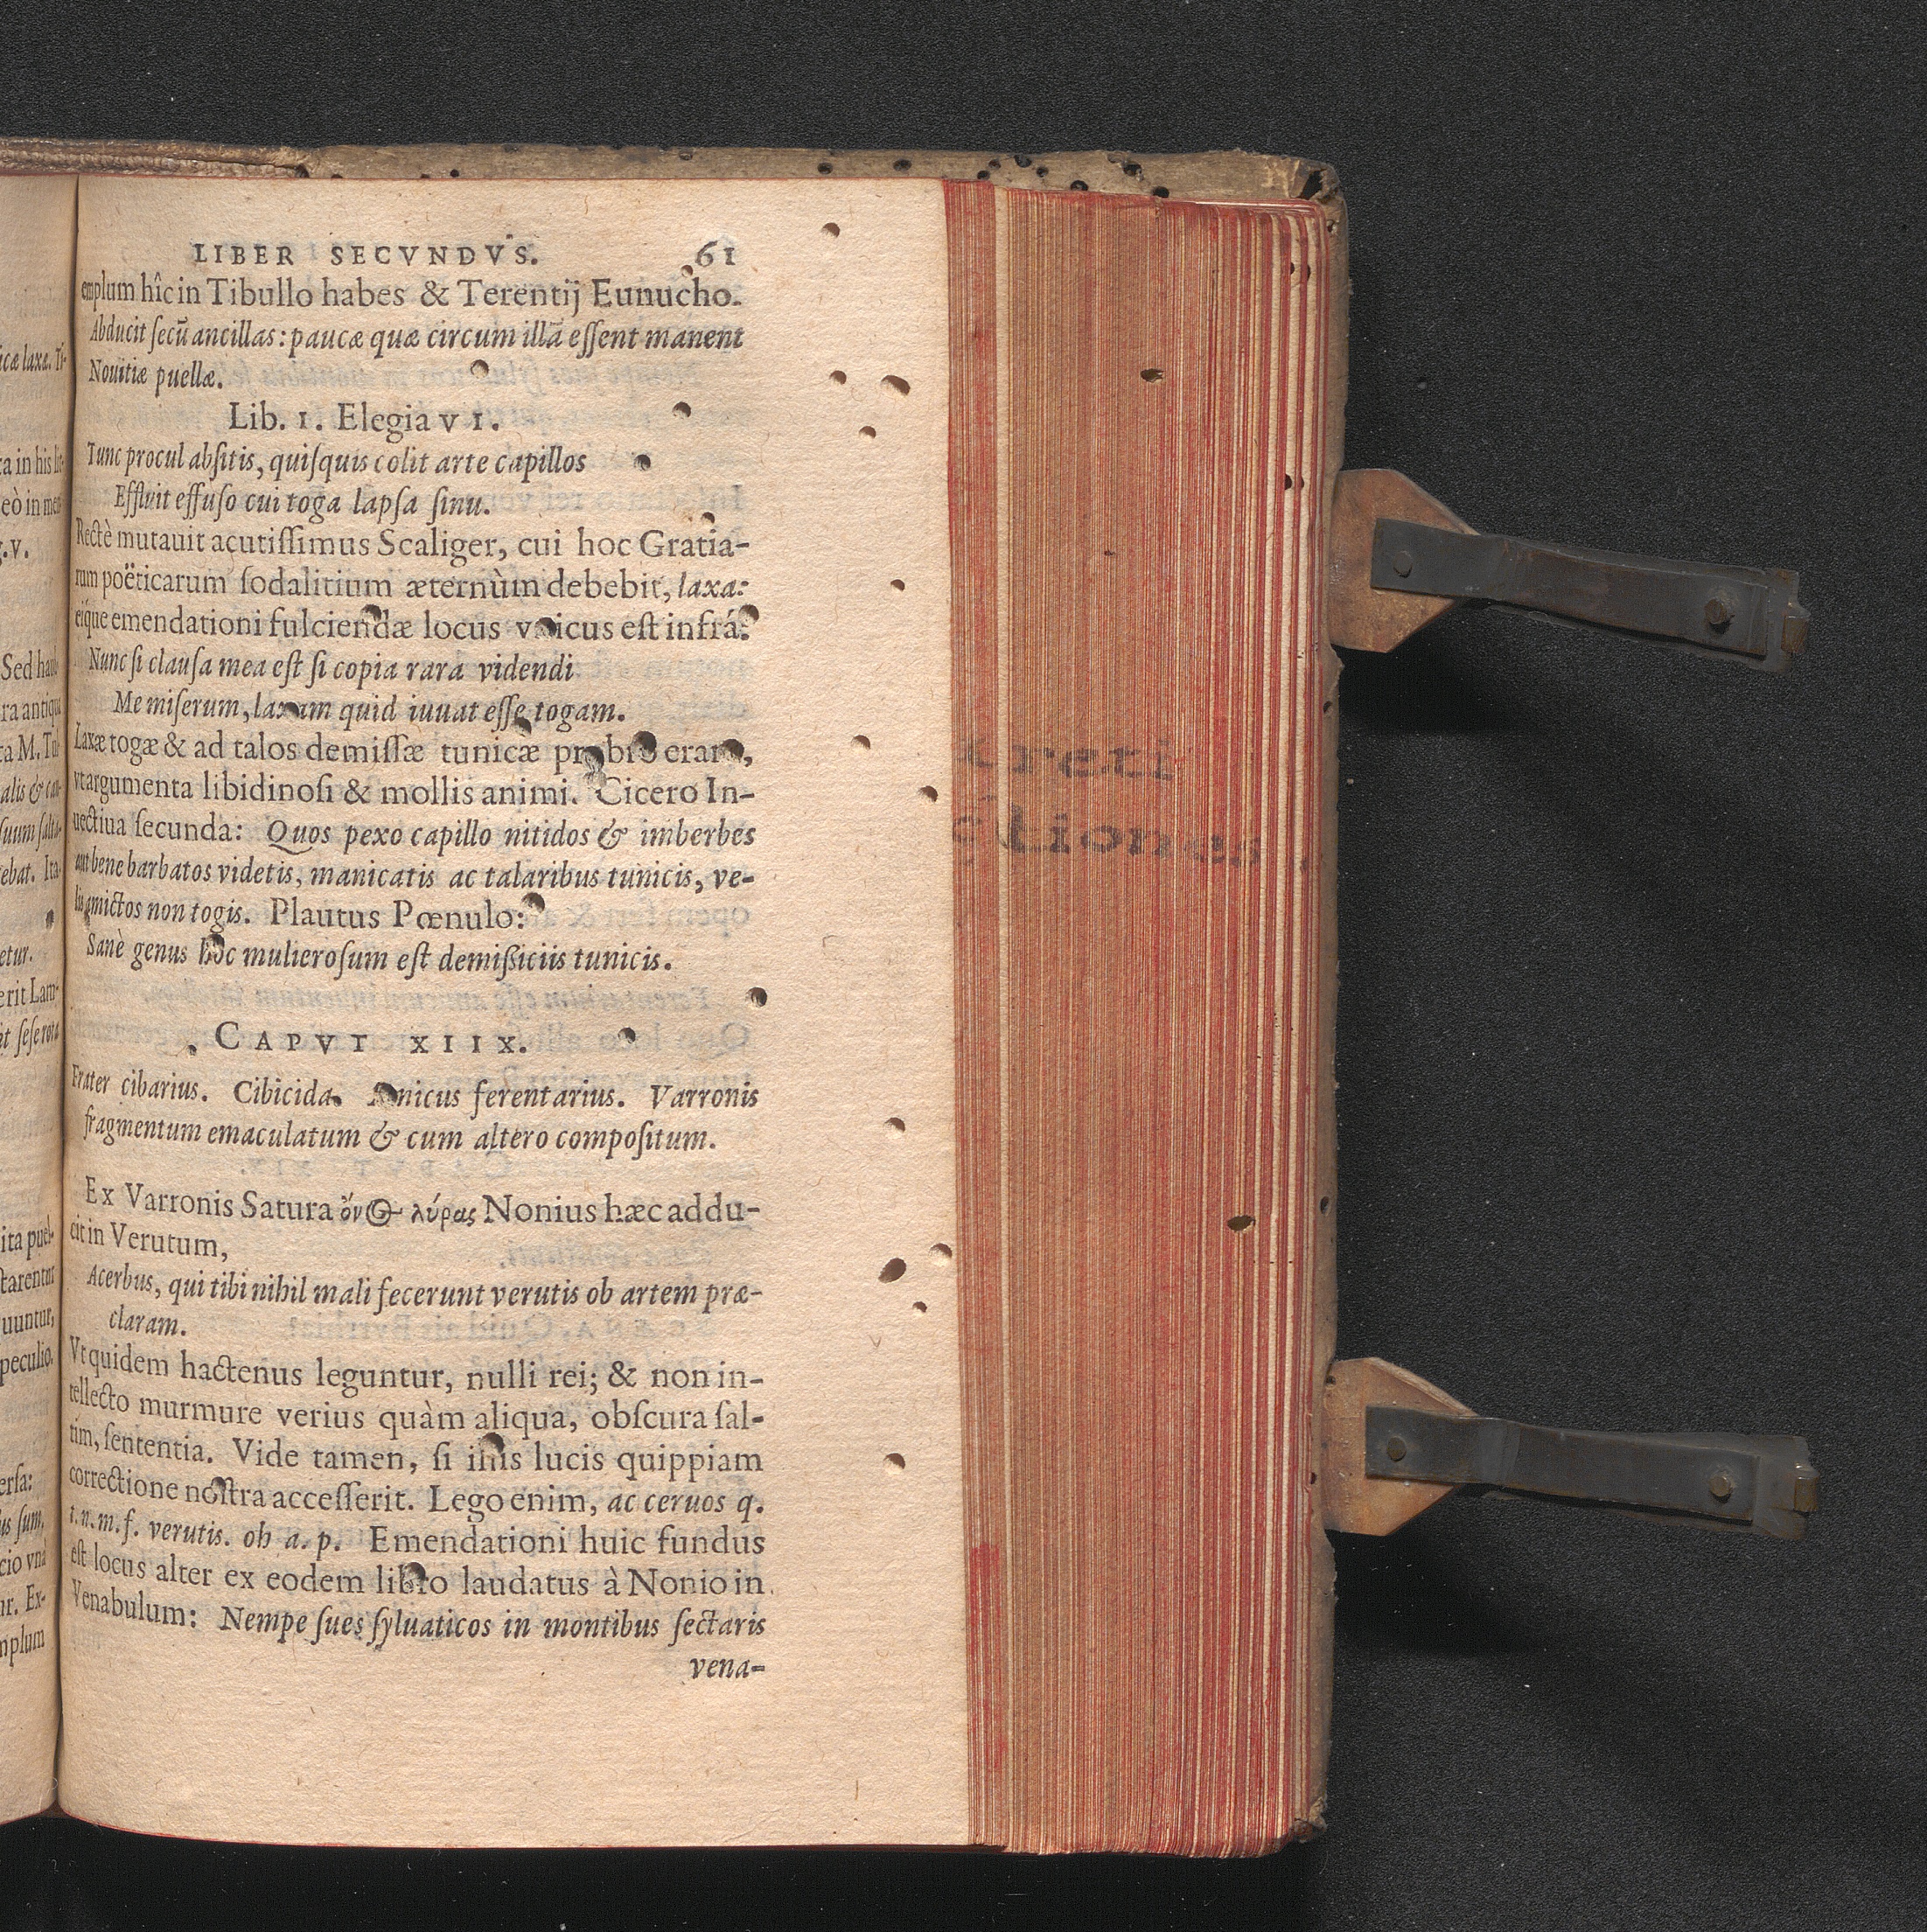 LIBER SECVNDVS. 61
emplum hîc in Tibullo habes & Terentij Eunucho.
Abducit secū ancillas: paucæ quæ circum illā essent manent
Nouitiæ puellæ.
Lib. 1. Elegia v 1.
Tunc procul absitis, quisquis colit arte capillos
Effluit effuso cui toga lapsa sinu.
Rectè mutauit acutissimus Scaliger, cui hoc Gratia-
rum poëticarum sodalitium æternùm debebit, laxa:
eíque emendationi fulciendæ locus vnicus est infrá:
Nunc si clausa mea est si copia rara videndi
Me miserum, laxam quid iuuat esse togam.
Laxæ togæ & ad talos demissæ tunicæ probro erant,
vt argumenta libidinosi & mollis animi. Cicero In-
uectiua secunda: Quos pexo capillo nitidos & imberbes
aut bene barbatos videtis, manicatis ac talaribus tunicis, ve-
lis amictos non togis. Plautus Pœnulo:
Sanè genus hoc mulierosum est demißiciis tunicis.
CAPVT XIIX.
Frater cibarius. Cibicida. Amicus ferentarius. Varronis
fragmentum emaculatum & cum altero compositum.
Ex Varronis Satura ὄνος λύρας Nonius hæc addu-
cit in Verutum,
Acerbus, qui tibi nihil mali fecerunt verutis ob artem præ-
claram.
Vt quidem hactenus leguntur, nulli rei; & non in-
tellecto murmure verius quàm aliqua, obscura sal-
tim, sententia. Vide tamen, si illis lucis quippiam
correctione nostra accesserit. Lego enim, ac ceruos q.
t. n. m. f. verutis. ob a. p. Emendationi huic fundus
est locus alter ex eodem libro laudatus à Nonio in
Venabulum: Nempe sues syluaticos in montibus sectaris
vena-